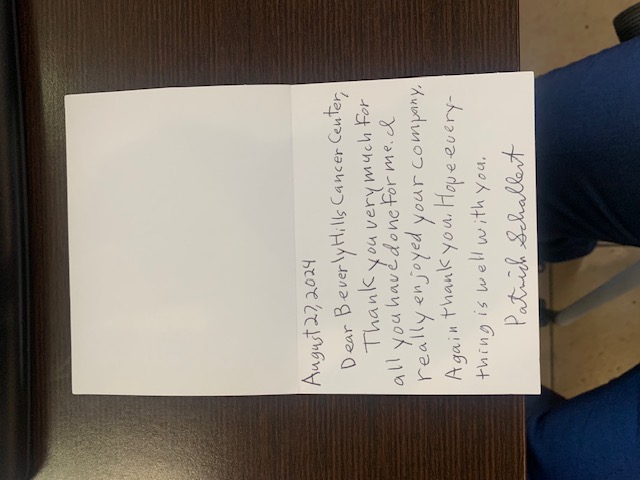 August 27, 2024
Dear Beverly Hills Cancer Center,
Thank you very much for
all you have done for me. I
really enjoyed your company.
Again thank you. Hope every-
thing is well with you.
Patrick Schallert